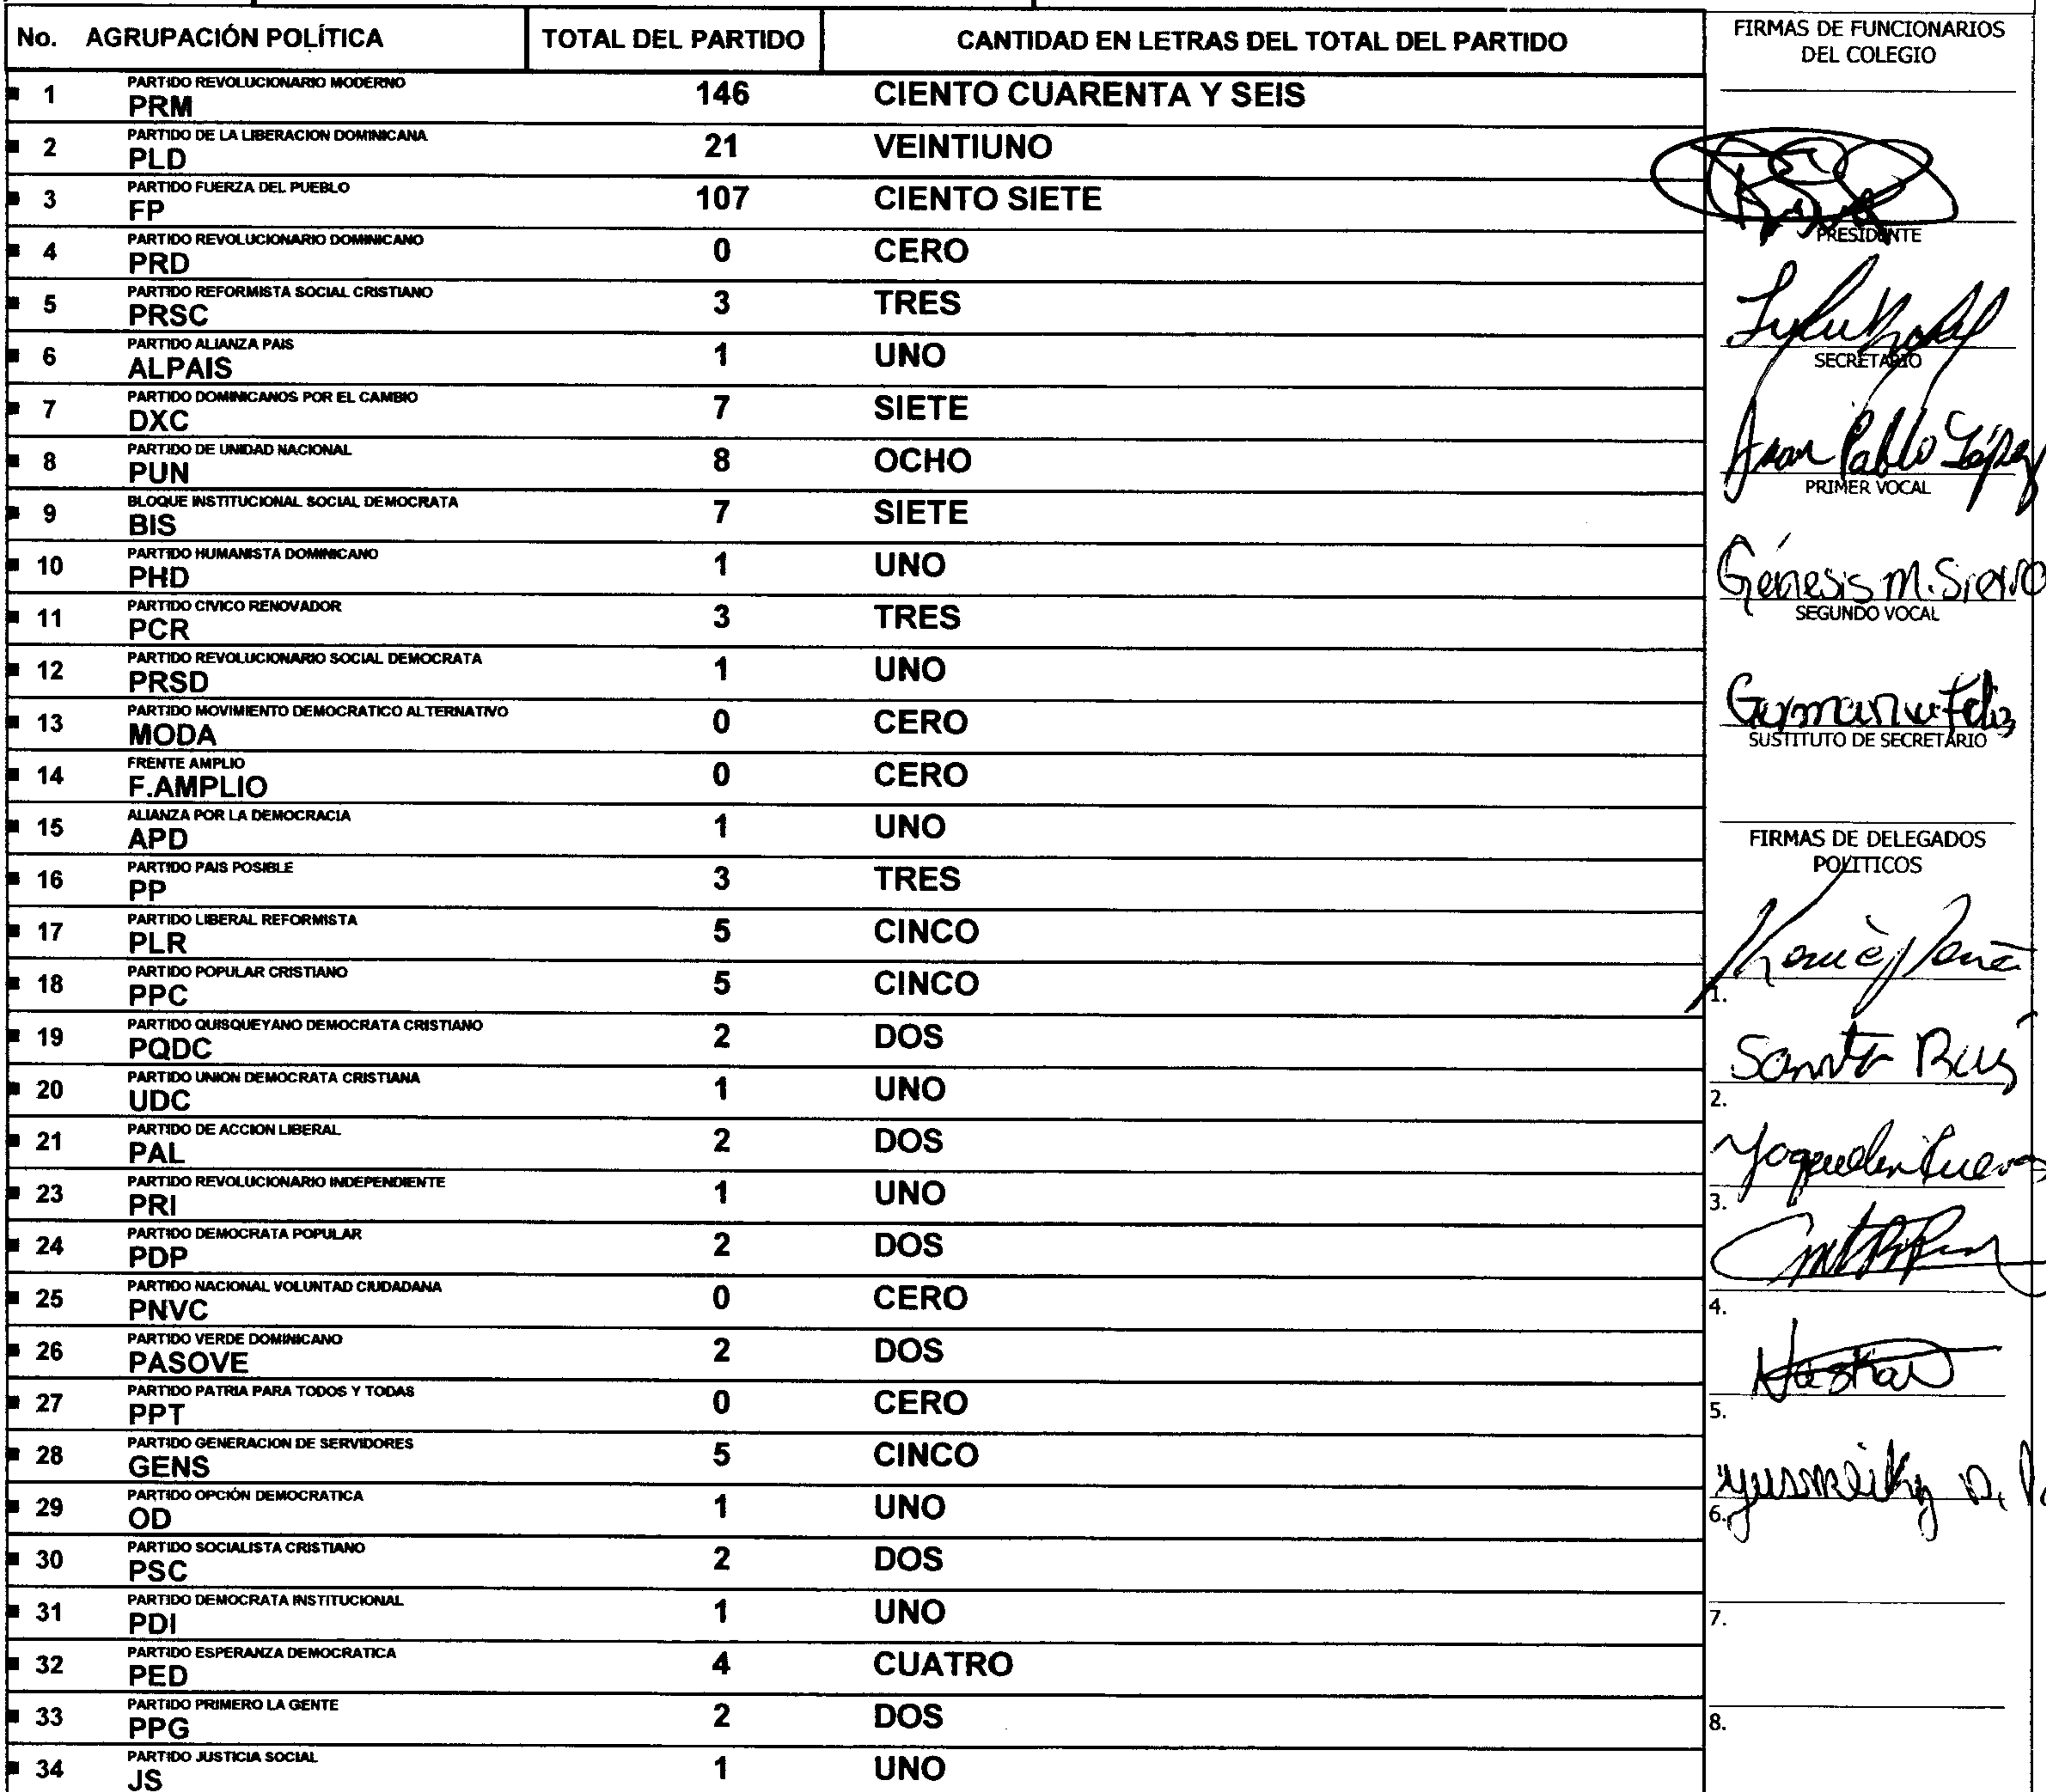 No. AGRUPACIÓN POLÍTICA TOTAL DEL PARTIDO CANTIDAD EN LETRAS DEL TOTAL DEL PARTIDO
1 PARTIDO REVOLUCIONARIO MODERNO
PRM 146 CIENTO CUARENTA Y SEIS
2 PARTIDO DE LA LIBERACION DOMINICANA
PLD 21 VEINTIUNO
3 PARTIDO FUERZA DEL PUEBLO
FP 107 CIENTO SIETE
4 PARTIDO REVOLUCIONARIO DOMINICANO
PRD 0 CERO
5 PARTIDO REFORMISTA SOCIAL CRISTIANO
PRSC 3 TRES
6 PARTIDO ALIANZA PAIS
ALPAIS 1 UNO
7 PARTIDO DOMINICANOS POR EL CAMBIO
DXC 7 SIETE
8 PARTIDO DE UNIDAD NACIONAL
PUN 8 OCHO
9 BLOQUE INSTITUCIONAL SOCIAL DEMOCRATA
BIS 7 SIETE
10 PARTIDO HUMANISTA DOMINICANO
PHD 1 UNO
11 PARTIDO CIVICO RENOVADOR
PCR 3 TRES
12 PARTIDO REVOLUCIONARIO SOCIAL DEMOCRATA
PRSD 1 UNO
13 PARTIDO MOVIMIENTO DEMOCRATICO ALTERNATIVO
MODA 0 CERO
14 FRENTE AMPLIO
F.AMPLIO 0 CERO
15 ALIANZA POR LA DEMOCRACIA
APD 1 UNO
16 PARTIDO PAIS POSIBLE
PP 3 TRES
17 PARTIDO LIBERAL REFORMISTA
PLR 5 CINCO
18 PARTIDO POPULAR CRISTIANO
PPC 5 CINCO
19 PARTIDO QUISQUEYANO DEMOCRATA CRISTIANO
PQDC 2 DOS
20 PARTIDO UNION DEMOCRATA CRISTIANA
UDC 1 UNO
21 PARTIDO DE ACCION LIBERAL
PAL 2 DOS
23 PARTIDO REVOLUCIONARIO INDEPENDIENTE
PRI 1 UNO
24 PARTIDO DEMOCRATA POPULAR
PDP 2 DOS
25 PARTIDO NACIONAL VOLUNTAD CIUDADANA
PNVC 0 CERO
26 PARTIDO VERDE DOMINICANO
PASOVE 2 DOS
27 PARTIDO PATRIA PARA TODOS Y TODAS
PPT 0 CERO
28 PARTIDO GENERACION DE SERVIDORES
GENS 5 CINCO
29 PARTIDO OPCIÓN DEMOCRATICA
OD 1 UNO
30 PARTIDO SOCIALISTA CRISTIANO
PSC 2 DOS
31 PARTIDO DEMOCRATA INSTITUCIONAL
PDI 1 UNO
32 PARTIDO ESPERANZA DEMOCRATICA
PED 4 CUATRO
33 PARTIDO PRIMERO LA GENTE
PPG 2 DOS
34 PARTIDO JUSTICIA SOCIAL
JS 1 UNO
FIRMAS DE FUNCIONARIOS
DEL COLEGIO
PRESIDENTE
SECRETARIO
Juan Pablo López
PRIMER VOCAL
Génesis M.
SEGUNDO VOCAL
Feliz
SUSTITUTO DE SECRETARIO
FIRMAS DE DELEGADOS
POLITICOS
1.
2.
3.
4.
5.
6.
7.
8.